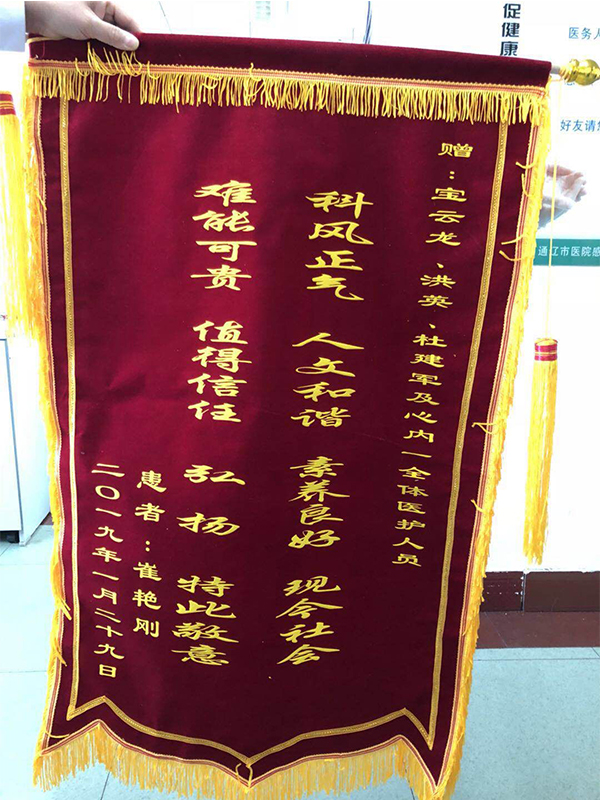 赠：宝云龙、洪英、杜建军及心内一全体医护人员
科风正气 人文和谐 素养良好 现今社会
难能可贵 值得信任 弘扬 特此敬意
患者：崔艳刚
二〇一九年一月二十九日
促健康
医务人
好友请您
通辽市医院感